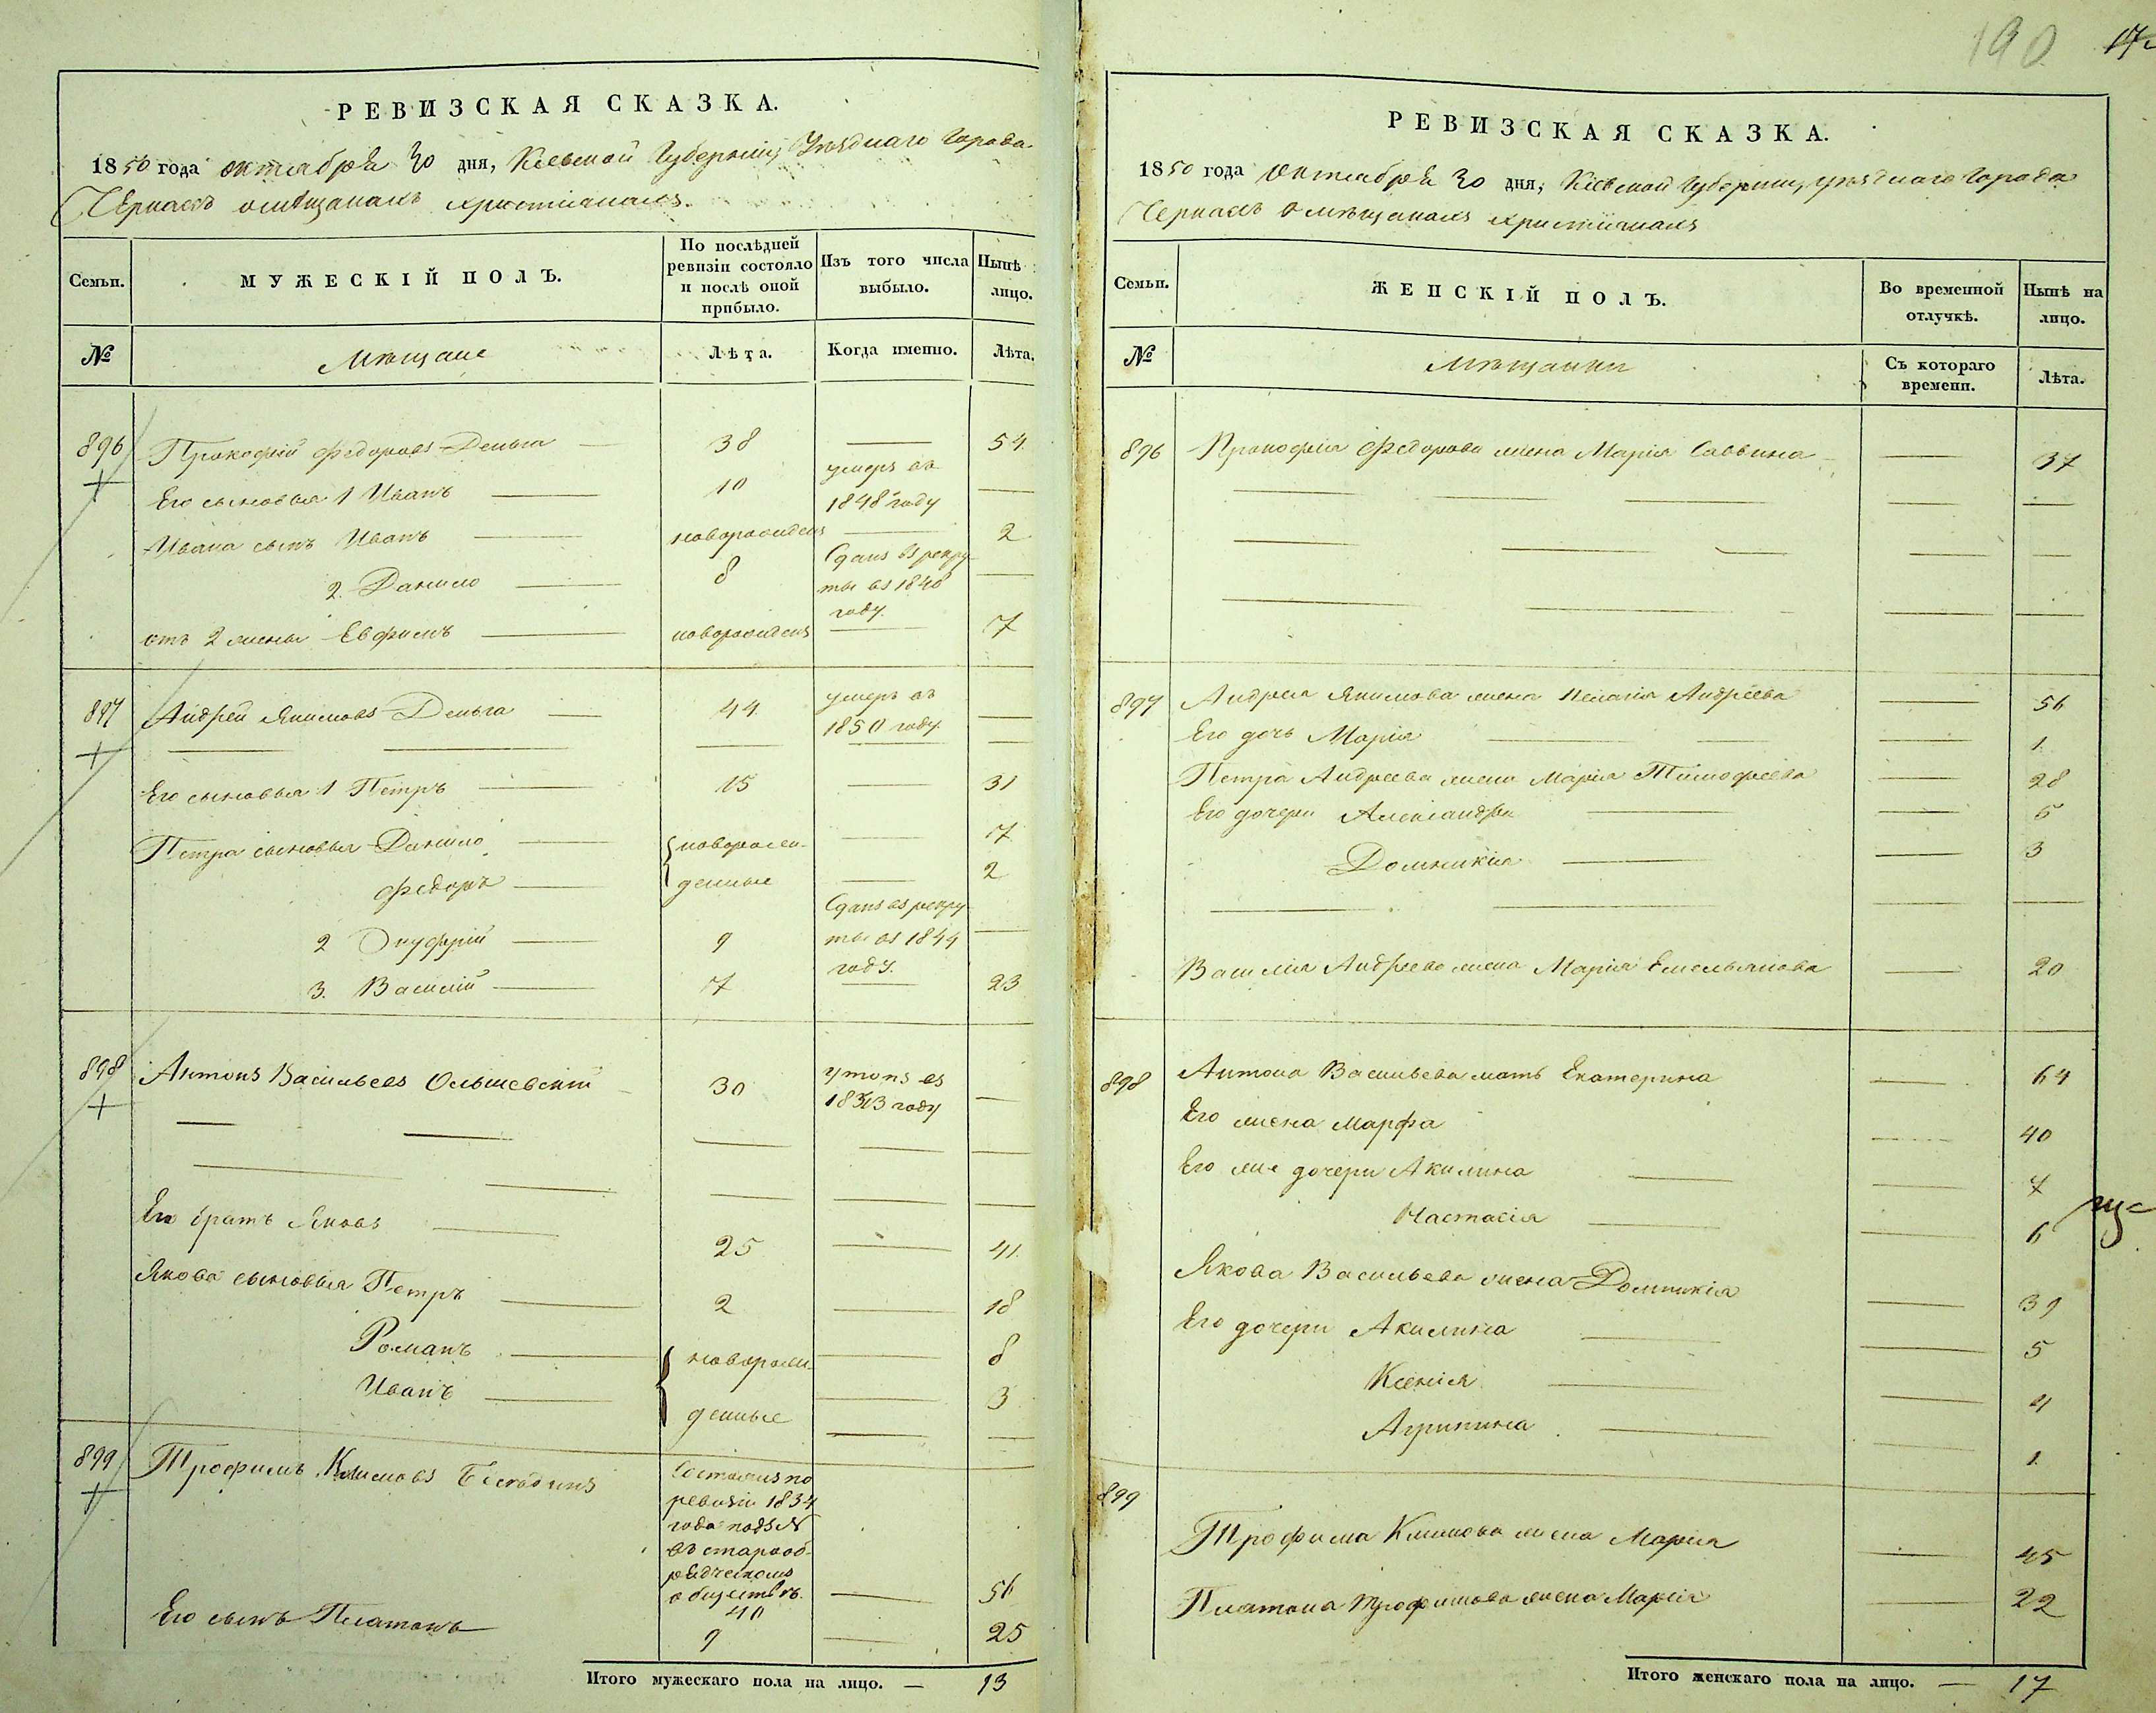 РЕВИЗСКАЯ СКАЗКА.
1850 года октября 30 дня, Кіевской Губерніи, Уѣзднаго Города
Черкасъ о мѣщанахъ христіанахъ.
Семьи.
МУЖЕСКІЙ ПОЛЪ.
По послѣдней ревизіи состояло и послѣ оной прибыло.
Изъ того числа выбыло.
Нынѣ лицо.
№
Мѣщане
Лѣта.
Когда именно.
Лѣта.
896 Прокофій Федоровъ Деньга 38 54
Его сыновья 1 Иванъ 10 умеръ въ 1848 году
Ивана сынъ Иванъ новорожденъ 2
2. Данило 8 Сданъ въ рекруты въ 1846 году.
отъ 2 жены Ефимъ новорожденъ 7
897 Андрей Якимовъ Деньга 44 умеръ въ 1850 году.
Его сыновья 1 Петръ 15 31
Петра сыновья Данило новорожденные 7
Федоръ 2
2 Онуфрій 9 Сданъ въ рекруты въ 1844 году.
3. Василій 7 23
898 Антонъ Васильевъ Ольшевскій 30 утопъ въ 1843 году
Его братъ Яковъ 25 41
Якова сыновья Петръ 2 18
Романъ новорожденные 8
Иванъ 3
899 Трофимъ Климовъ Бесѣдинъ
Состоялъ по
ревизіи 1834
года подъ №
въ старооб-
рядческомъ
обществѣ.
40 56
Его сынъ Платонъ 9 25
Итого мужескаго пола на лицо. — 13
190
РЕВИЗСКАЯ СКАЗКА.
1850 года октября 30 дня, Кіевской Губерніи, уѣзднаго Города
Черкасъ о мѣщанахъ христіанахъ
Семьи.
ЖЕНСКІЙ ПОЛЪ.
Во временной отлучкѣ.
Нынѣ на лицо.
№
Мѣщанки
Съ котораго времени.
Лѣта.
896 Прокофія Федорова жена Марія Саввина 37
897 Андрея Якимова жена Пелагія Андреева 56
Его дочь Марія 1
Петра Андреева жена Марія Тимофеева 28
Его дочери Александра 6
Домникія 3
Василія Андреева жена Марія Емельянова 20
898 Антона Васильева мать Екатерина 64
Его жена Марфа 40
Его же дочери Акилина 7
Настасія 6
Якова Васильева жена Домникія 39
Его дочери Акилина 5
Ксенія 4
Агрипина 1
899
Трофима Климова жена Марія 45
Платона Трофимова жена Марія 22
Итого женскаго пола на лицо. — 17